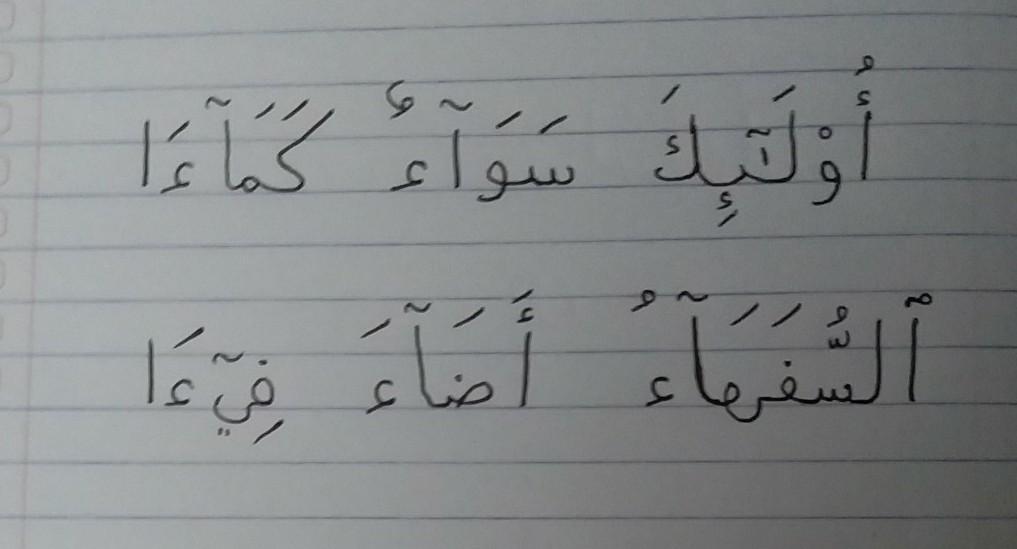 أُوْلَٰٓئِكَ سَوَآءٌ كَمَآ ءَا
ٱلسُّفَهَآءُ أَضَآءَ فِيٓ ءَا